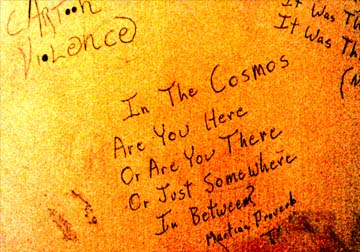 CARToon
VioLence
It Was Th
It Was Thi
In The Cosmos
Are You Here
Or Are You There
Or Just Somewhere
In Between?
Martian Proverb